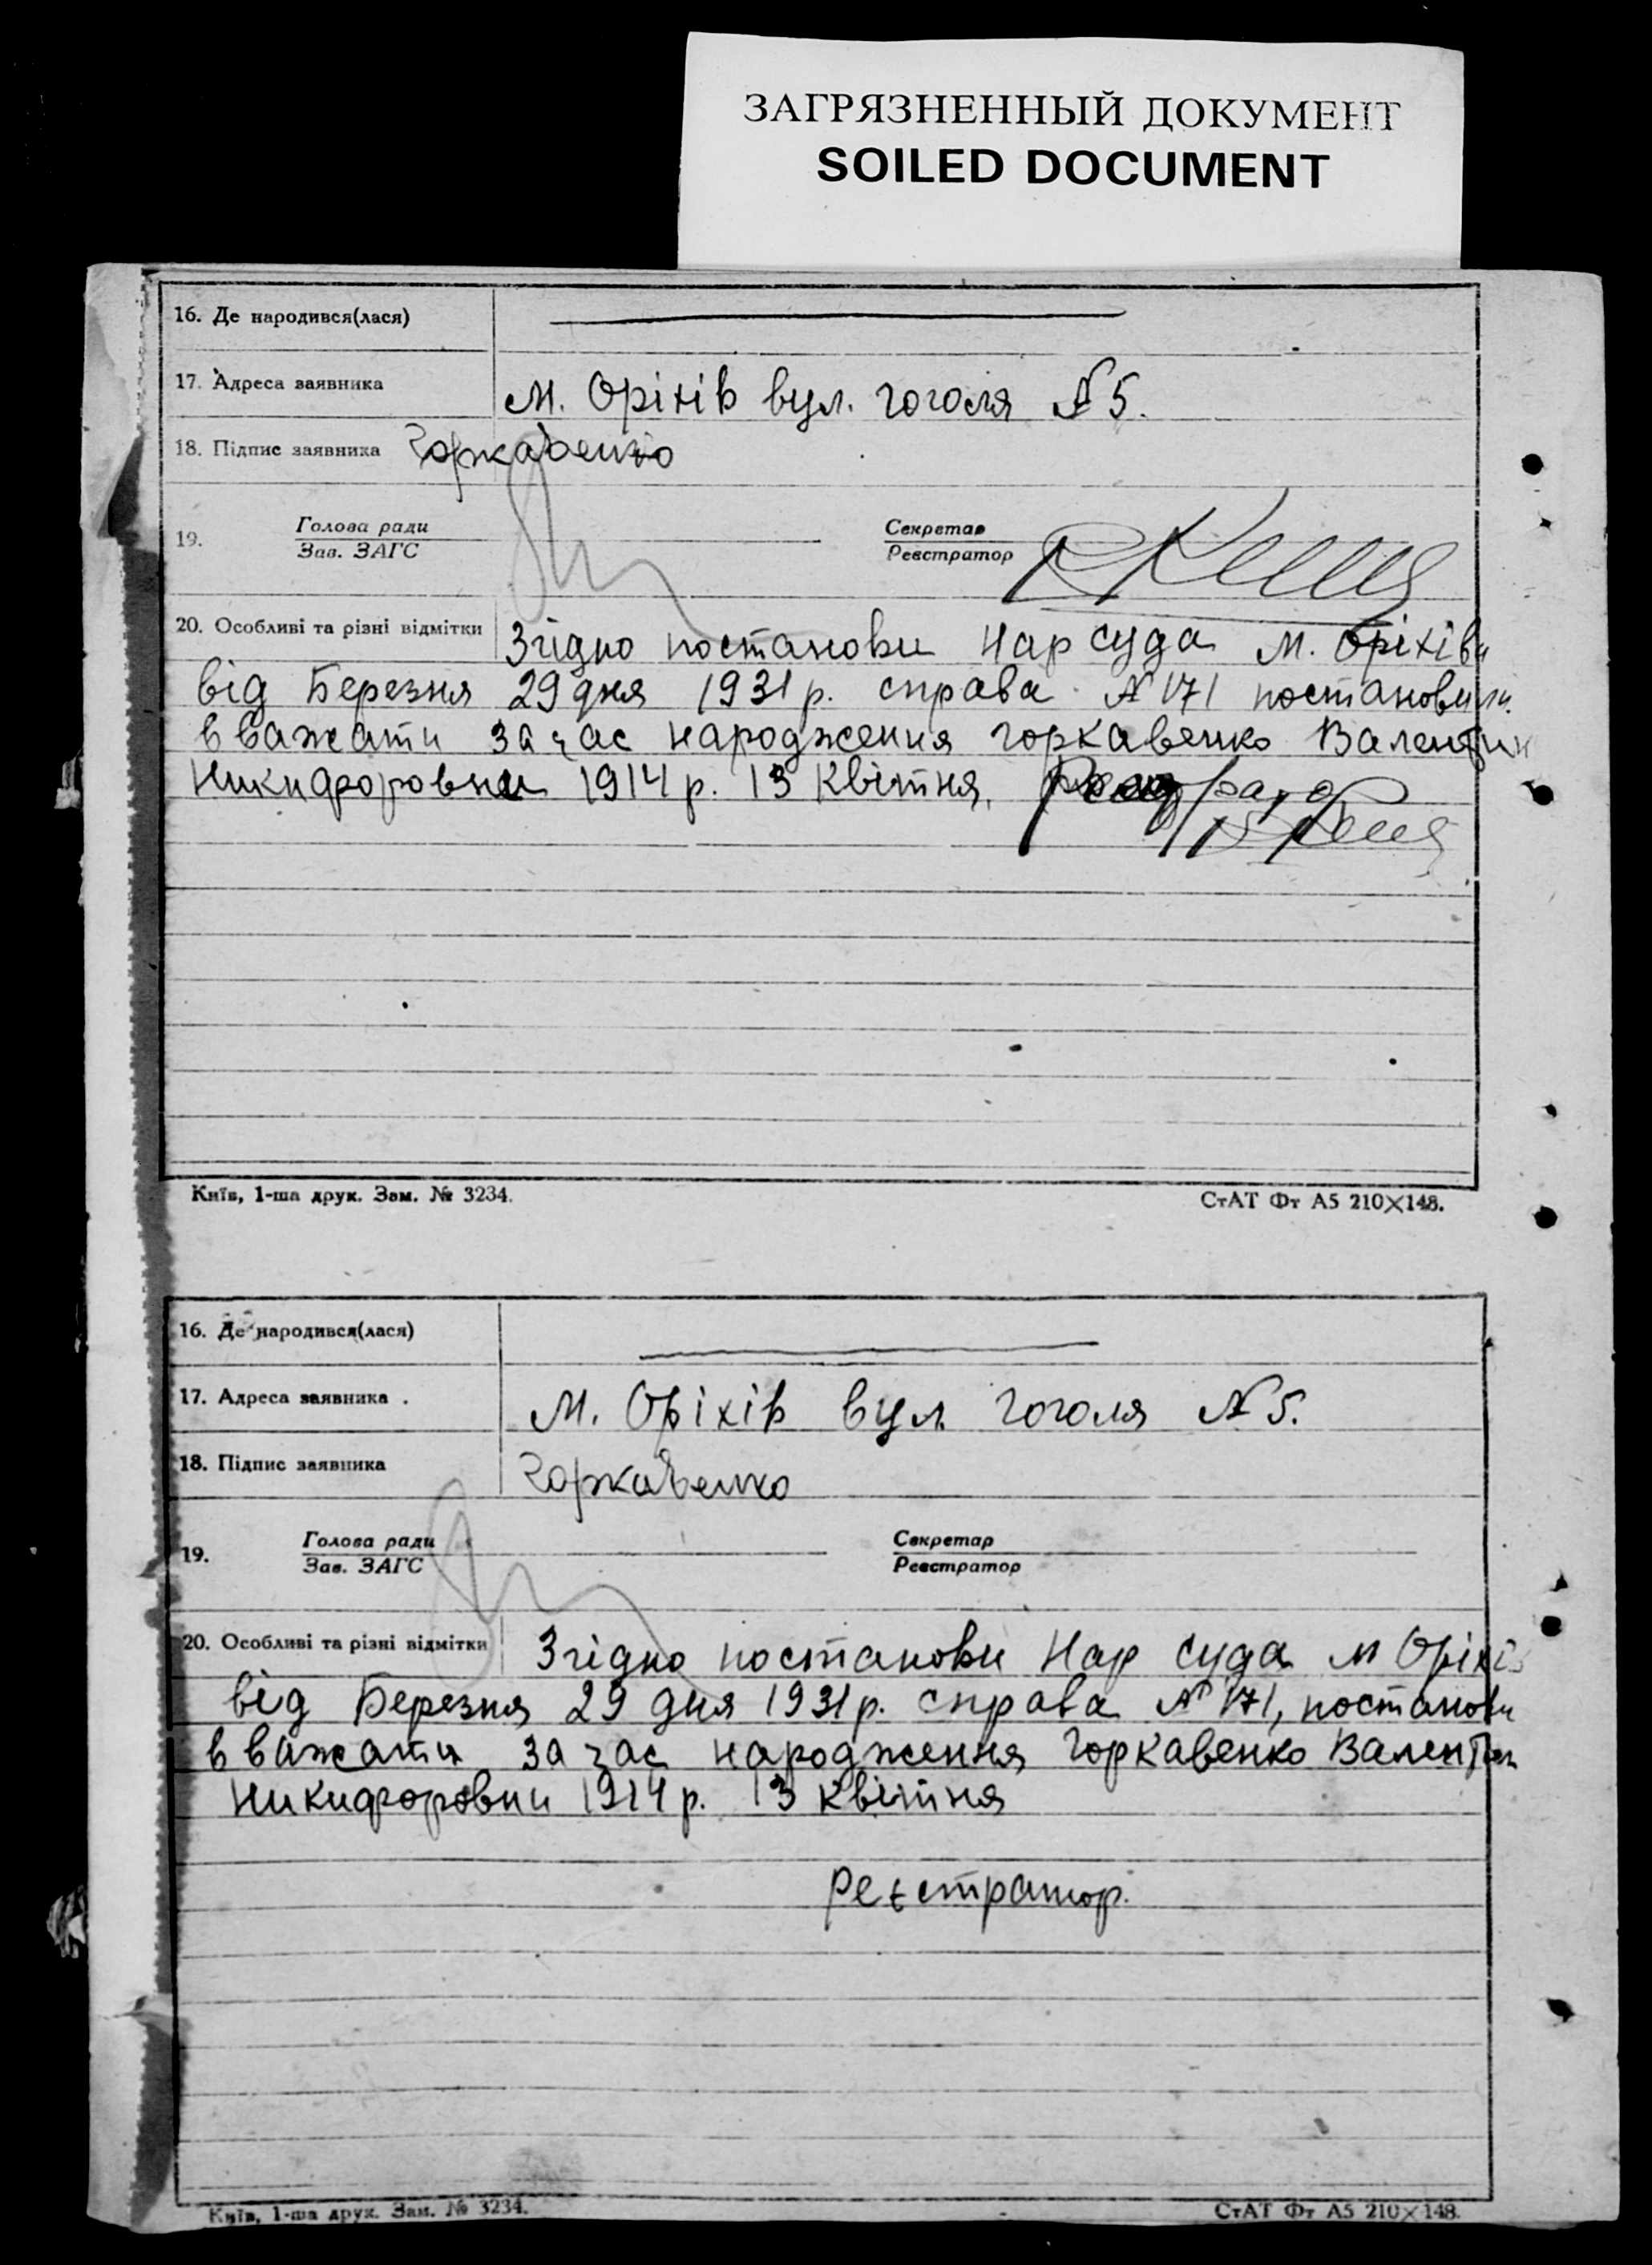 ЗАГРЯЗНЕННЫЙ ДОКУМЕНТ
SOILED DOCUMENT
16. Де народився(лася)
17. Адреса заявника
м. Оріхів вул. гоголя № 5.
18. Підпис заявника Горкавенко
19. Голова ради
Зав. ЗАГС
Секретар
Реєстратор
20. Особливі та різні відмітки Згідно постанови Нар суда м. Оріхів
від Березня 29 дня 1931 р. справа № 171 постановили
вважати за час народження горкавенко Валентин
Никифоровни 1914 р. 13 Квітня.
Київ, 1-ша друк. Зам. № 3234.
СтАТ Фт А5 210×148.
16. Де народився(лася)
17. Адреса заявника .
м. Оріхів вул. гоголя № 5.
18. Підпис заявника
Горкавенко
19. Голова ради
Зав. ЗАГС
Секретар
Реєстратор
20. Особливі та різні відмітки Згідно постанови Нар суда м Оріхів
від Березня 29 дня 1931 р. справа № 171, постанови
вважати за час народження Горкавенко Валентин
Никифоровни 1914 р. 13 Квітня
Реєстратор.
Київ, 1-ша друк. Зам. № 3234.
СтАТ Фт А5 210×148.